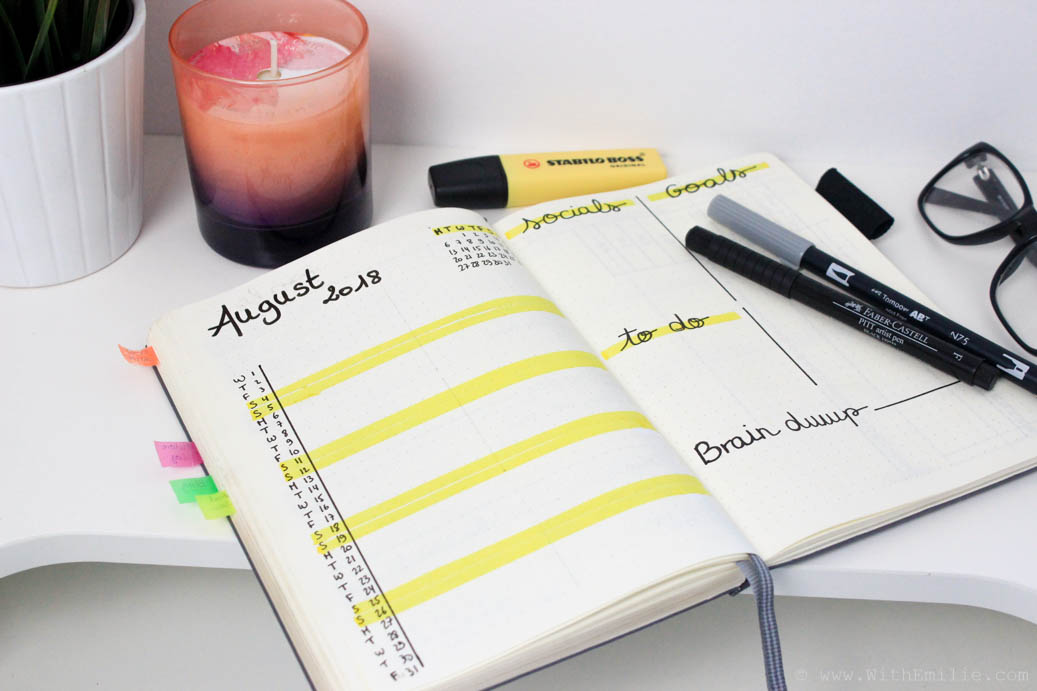 STABILO BOSS
ORIGINAL
M T W T F
1 2 3
6 7 8 9 10
13 14 15 16
20 21 22 23 24
27 28 29 30 31
August
2018
W 1
T 2
F 3
S 4
S 5
M 6
T 7
W 8
T 9
F 10
S 11
S 12
M 13
T 14
W 15
T 16
F 17
S 18
S 19
M 20
T 21
W 22
T 23
F 24
S 25
S 26
M 27
T 28
W 29
T 30
F 31
socials
Goals
to do
Brain duuup
Tombow ABT
N75
FABER-CASTELL
PITT artist pen
F
© www.WithEmilie.com